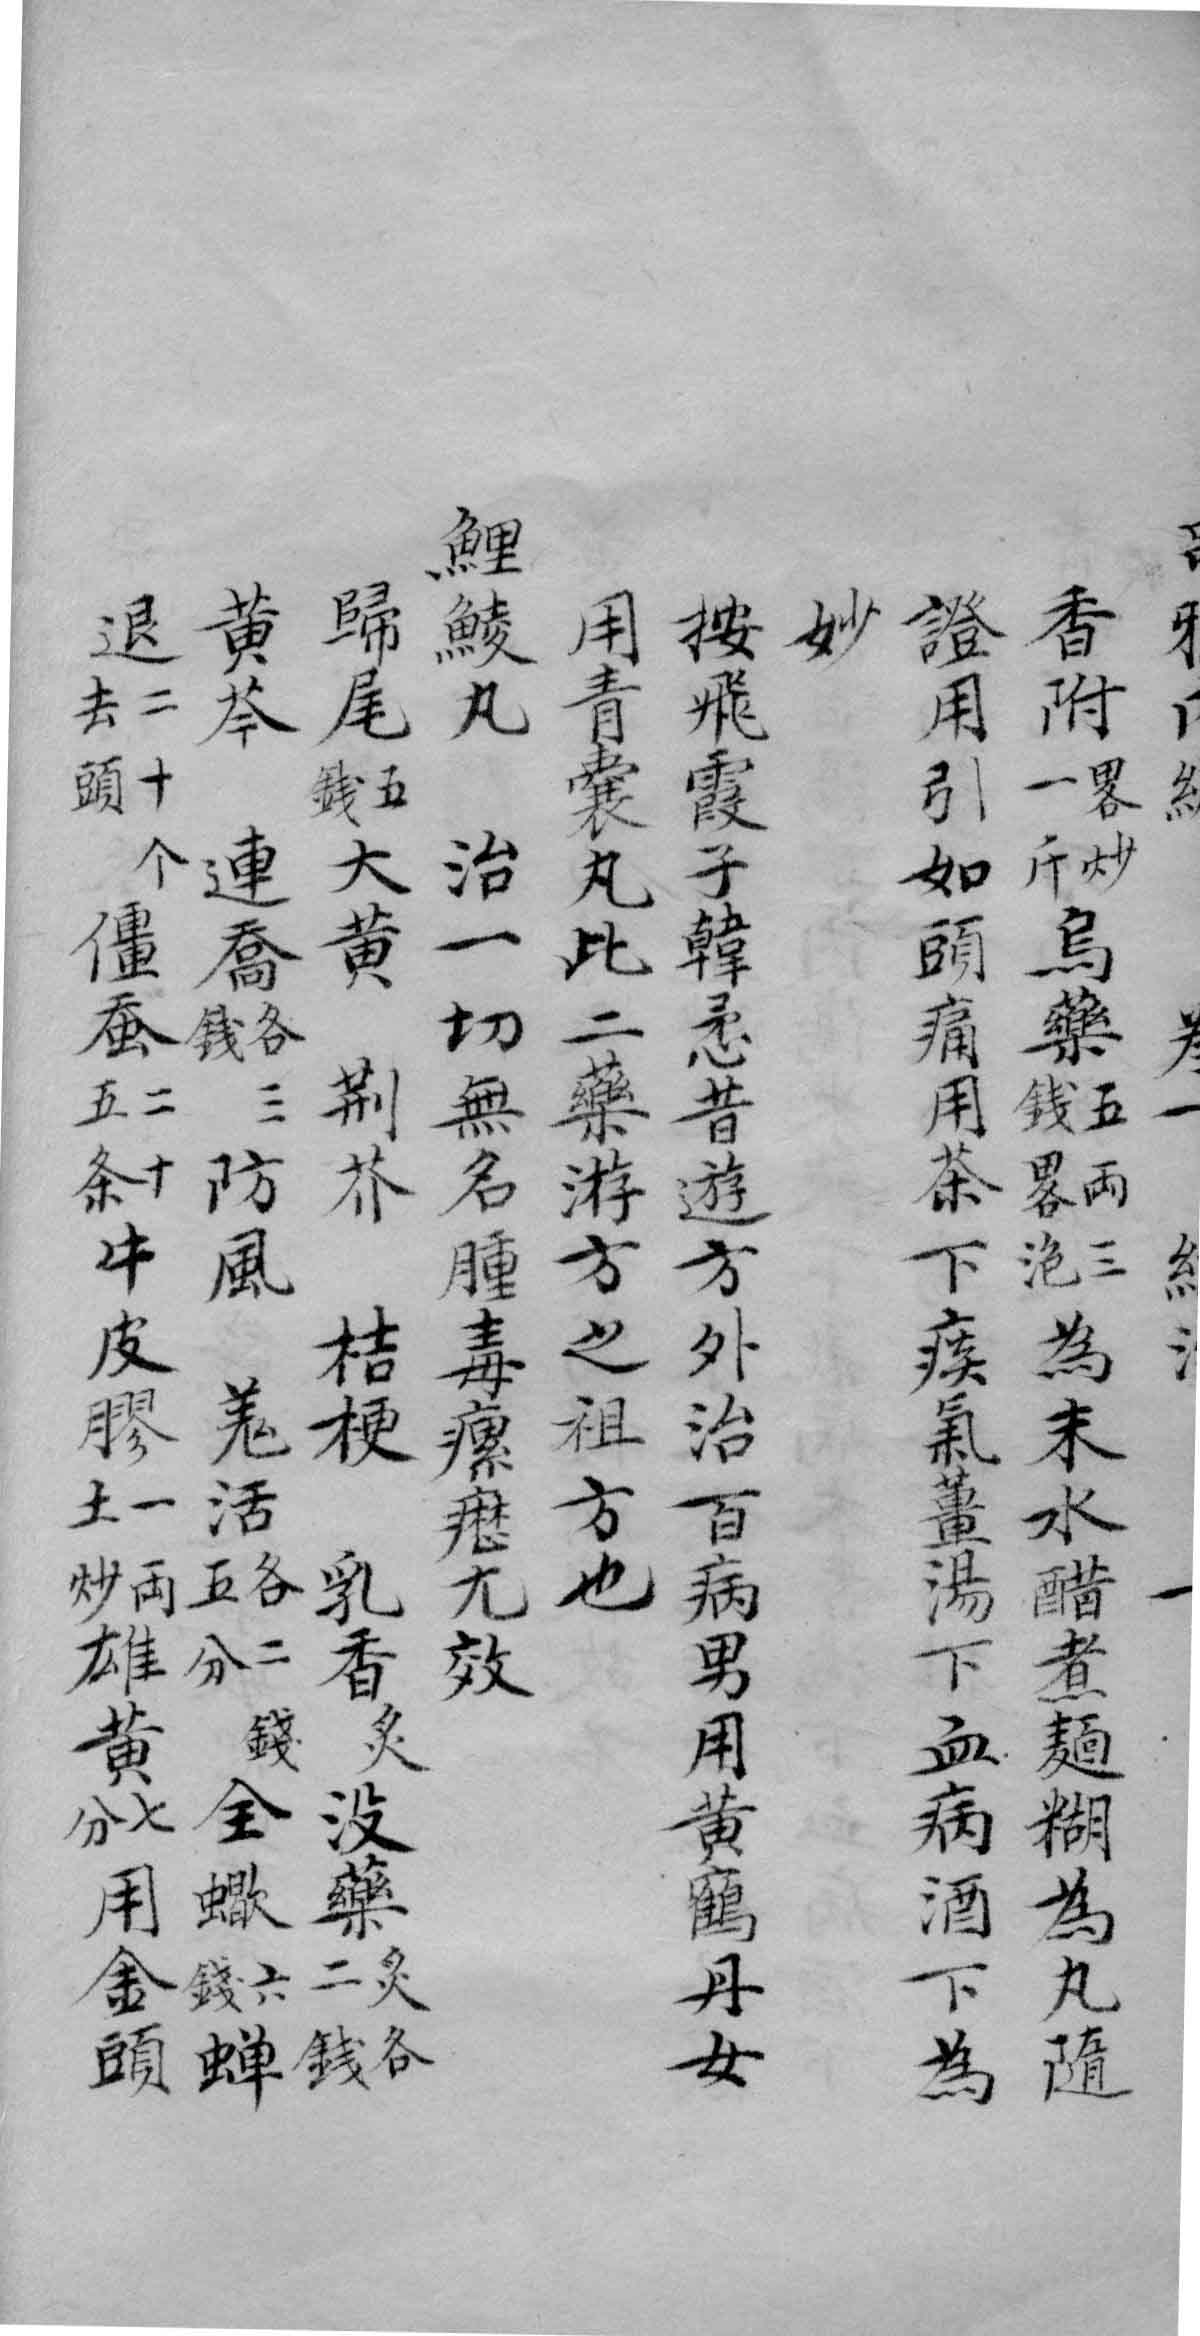 香附畧炒一斤烏藥五両三錢畧泡為末水醋煮麺糊為丸隨
證用引如頭痛用茶下痰氣薑湯下血病酒下為
妙
按飛霞子韓𢛯昔遊方外治百病男用黃鶴丹女
用青囊丸此二藥游方之祖方也
鯉鯪丸 治一切無名腫毒瘰癧尤效
歸尾五錢大黄 荆芥 桔梗 乳香炙没藥炙各二錢
黄芩 連喬各三錢防風 羗活各二錢五分全蠍六錢蝉
退二十个去頭僵蚕二十五条牛皮膠一両土炒雄黄七分用金頭